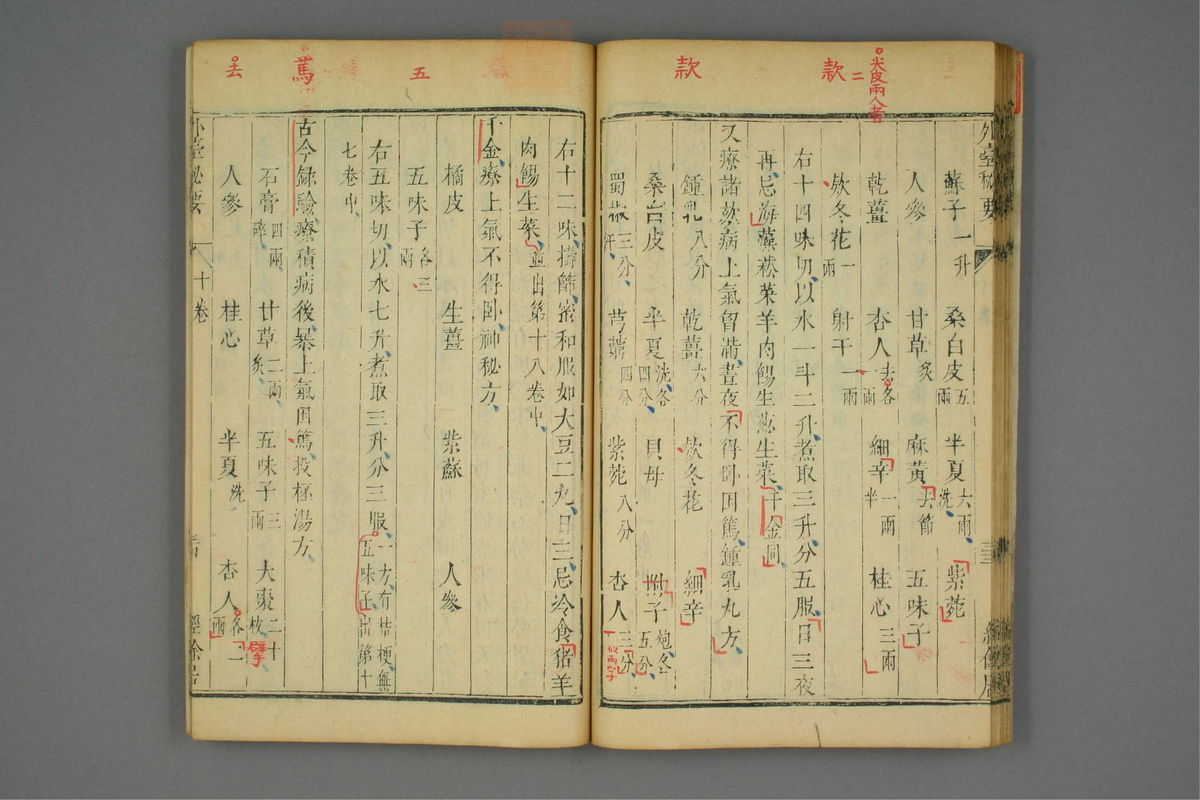 款
二
款
去皮兩人者
外臺秘要
蘇子一升 桑白皮五兩 半夏六兩洗 紫菀
人參 甘草炙 麻黃去節 五味子
乾薑 杏人去各一兩 細辛一兩半 桂心三兩
欵冬花一兩 射干一兩
右十四味切以水一斗二升煮取三升分五服日三夜
再忌海藻菘菜羊肉餳生葱生菜千金同
又療諸欬病上氣胷滿晝夜不得卧困篤鍾乳丸方
鍾乳八分 乾薑六分 欵冬花 細辛
桑白皮 半夏洗各四分 貝母 附子炮各五分
蜀椒三分汗 芎藭四分 紫菀八分 杏人三分
五
篤
去
右十二味擣篩蜜和服如大豆二丸日三忌冷食豬羊
肉餳生菜並出第十八卷中
千金療上氣不得卧神秘方
橘皮 生薑 紫蘇 人參
五味子各三兩
右五味切以水七升煮取三升分三服一方有桔梗無五味子出第十
七卷中
古今録驗療積病後暴上氣困篤投杯湯方
石膏四兩碎 甘草二兩炙 五味子三兩 大棗二十枚擘
人參 桂心 半夏洗 杏人各二兩
外臺秘要 十卷